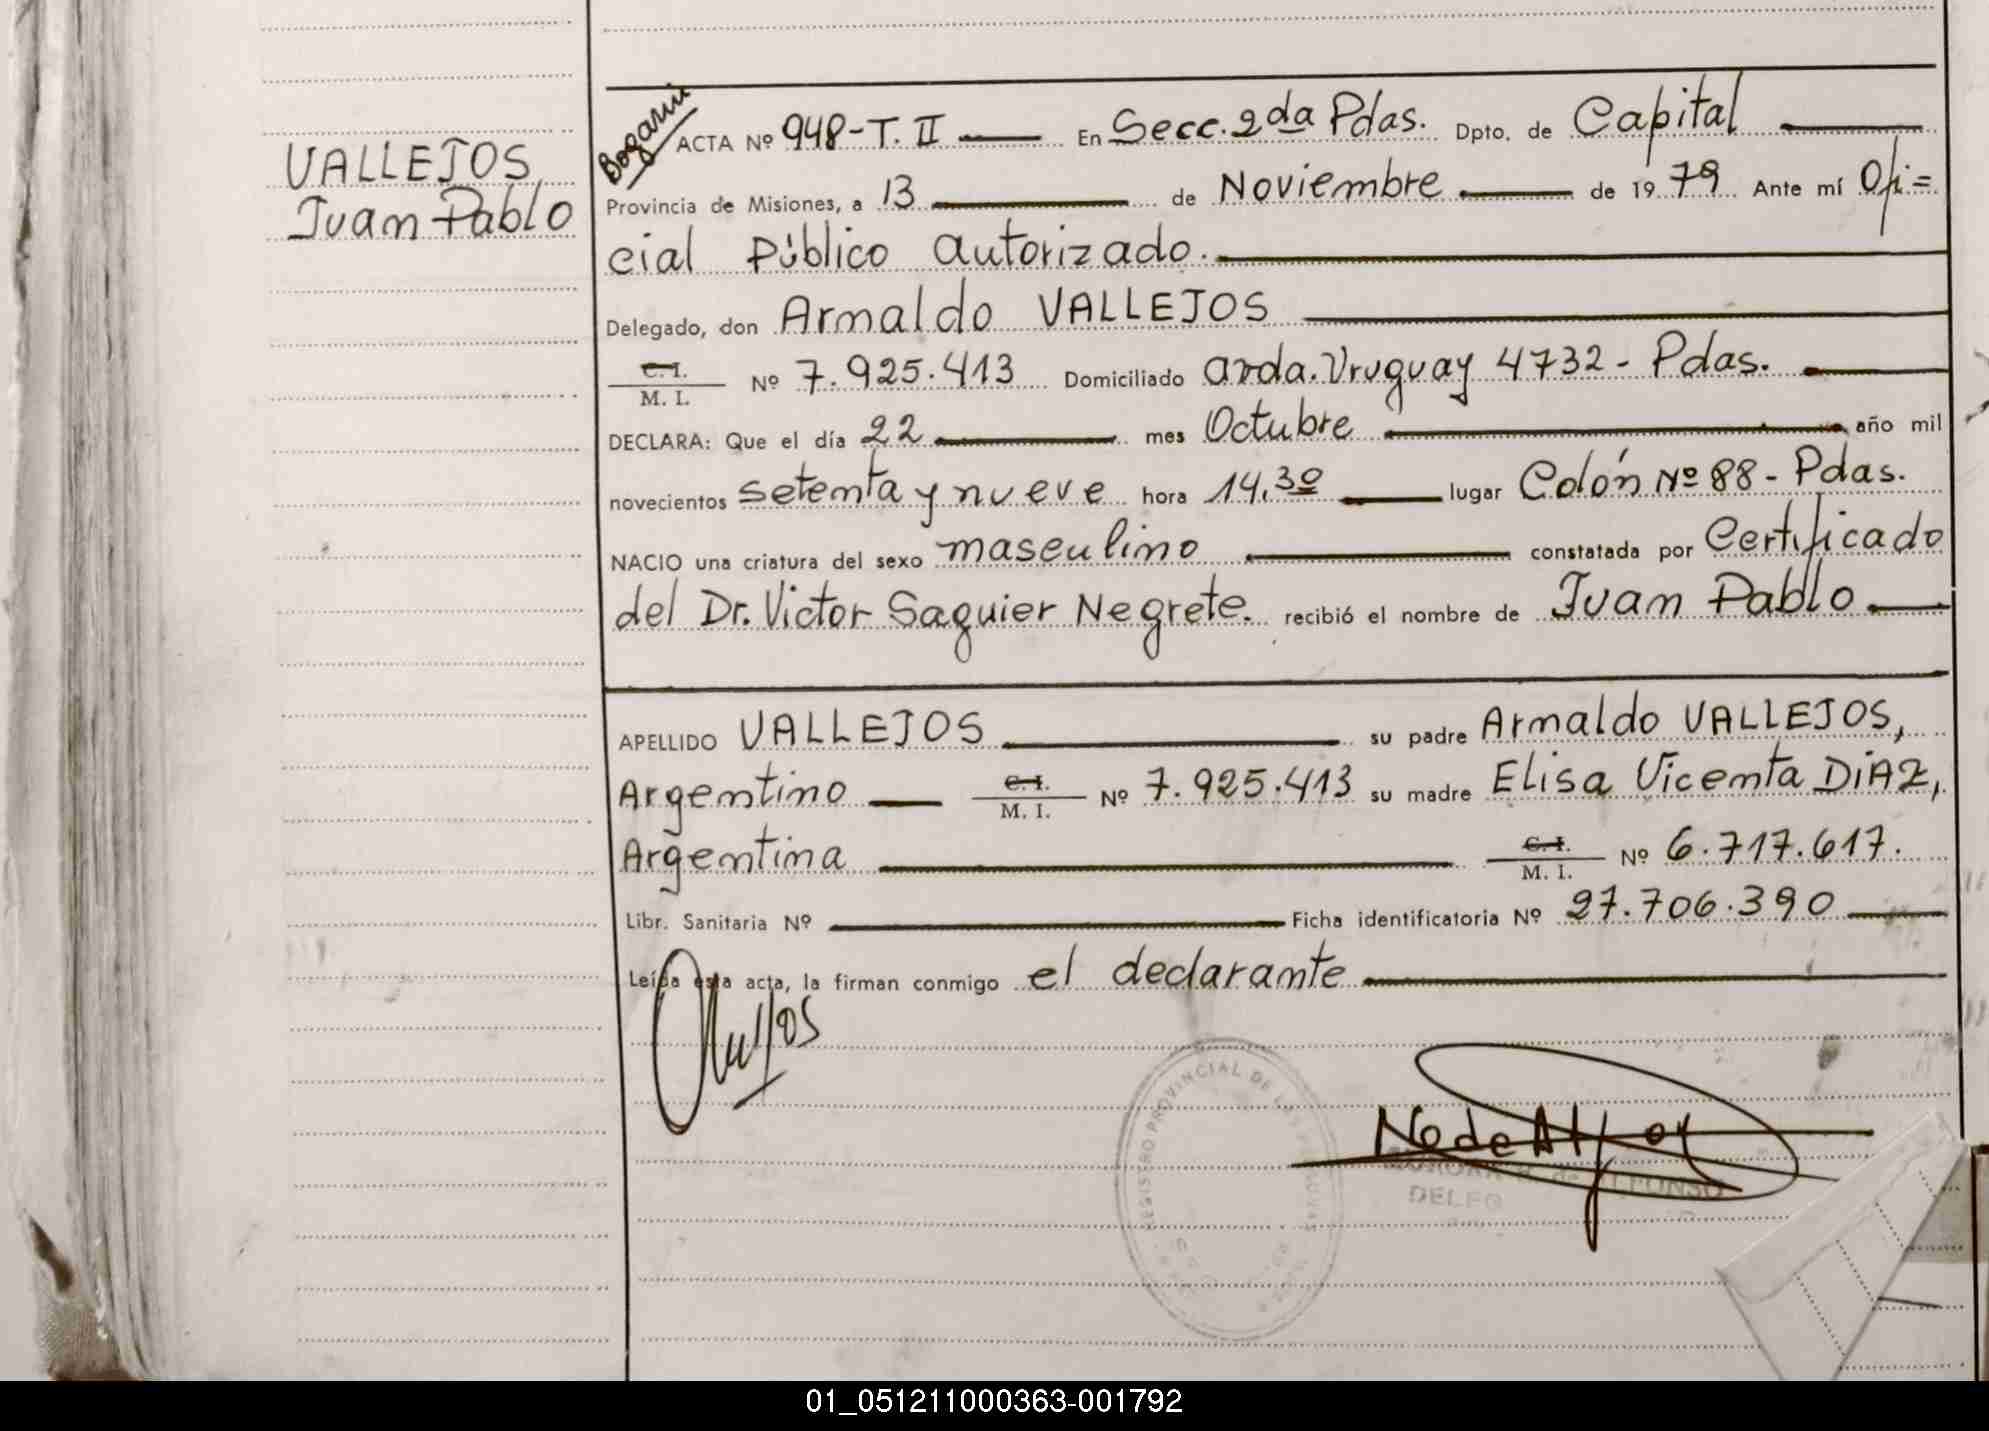 VALLEJOS
Juan Pablo
Bogarin
ACTA Nº 948-T. II En Secc. 2da Pdas. Dpto. de Capital
Provincia de Misiones, a 13 de Noviembre de 1979 Ante mí Ofi=
cial Público autorizado.
Delegado, don Arnaldo VALLEJOS
C. I.
M. I. Nº 7.925.413 Domiciliado avda. Uruguay 4732 - Pdas.
DECLARA: Que el día 22 mes Octubre año mil
novecientos setenta y nueve hora 14,30 lugar Colón Nº 88 - Pdas.
NACIO una criatura del sexo masculino constatada por Certificado
del Dr. Victor Saguier Negrete. recibió el nombre de Juan Pablo
APELLIDO VALLEJOS su padre Arnaldo VALLEJOS,
Argentino C. I. M. I. Nº 7.925.413 su madre Elisa Vicenta DiAZ,
Argentina C. I. M. I. Nº 6.717.617.
Libr. Sanitaria Nº Ficha identificatoria Nº 27.706.390
Leída esta acta, la firman conmigo el declarante
REGISTRO PROVINCIAL DE LAS PERSONAS
ALFONSO
DELEG
01_051211000363-001792